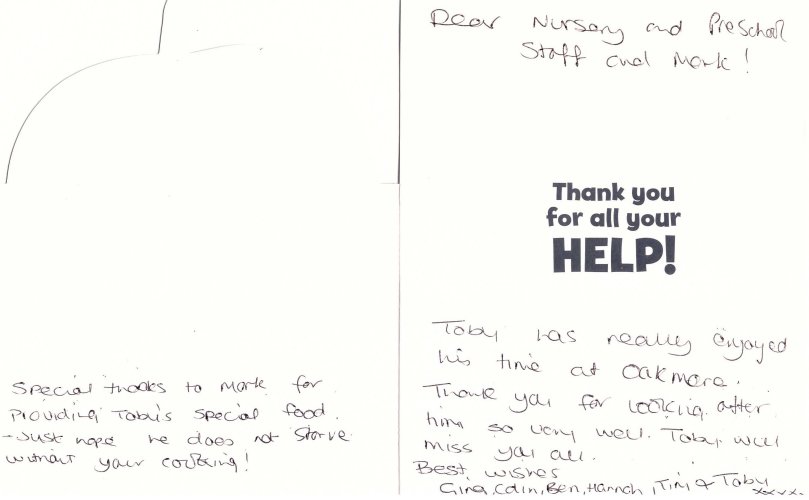 Special thanks to Mark for
providing Toby's special food.
- Just hope he does not starve
without your cooking!
Dear Nursery and Preschool
Staff and Mark!
Thank you
for all your
HELP!
Toby has really enjoyed
his time at Oakmere.
Thank you for looking after
him so very well. Toby will
miss you all.
Best wishes
Gina, Colin, Ben, Hannah, Tim & Toby
xxxxxx